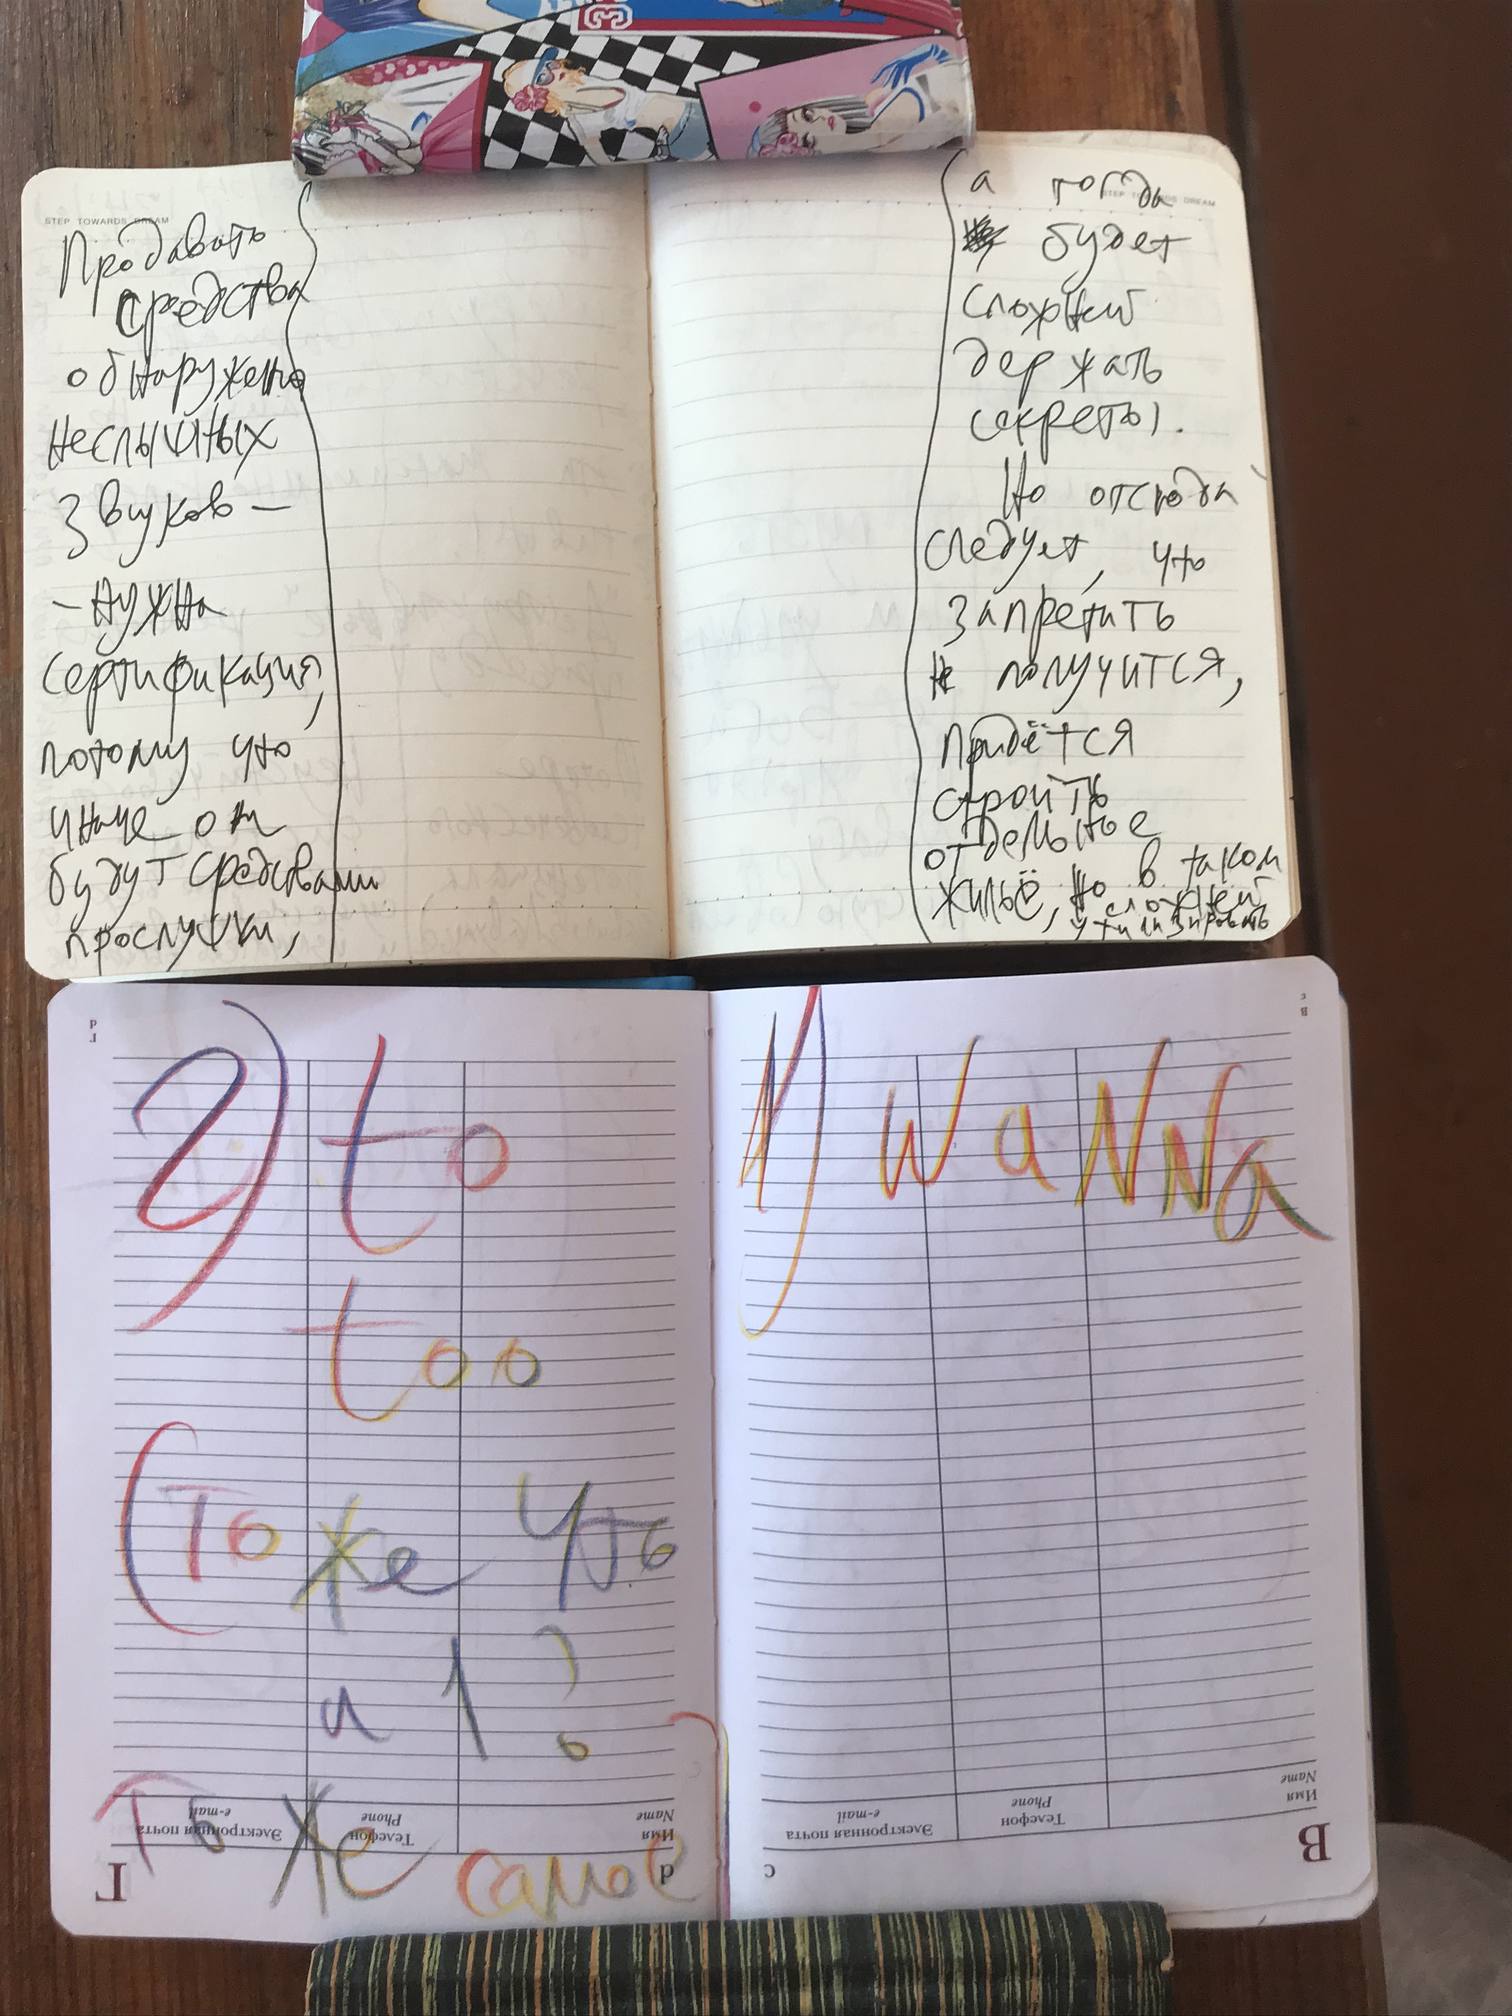 STEP TOWARDS DREAM
Продавать
средства
обнаружения
неслышных
звуков —
— нужна
сертификация,
потому что
иначе они
будут средствами
прослушки,
STEP TOWARDS DREAM
а тогда
будет
сложней
держать
секреты.
Но отсюда
следует, что
запретить
не получится,
придётся
строить
отдельное
жильё, но в таком
сложней
утилизировать
2) to
too
(То же что
и 1)
То же самое
Электронная почта
e-mail
Телефон
Phone
Имя
Name
Г
d
1) waNNa
Электронная почта
e-mail
Телефон
Phone
Имя
Name
В
c